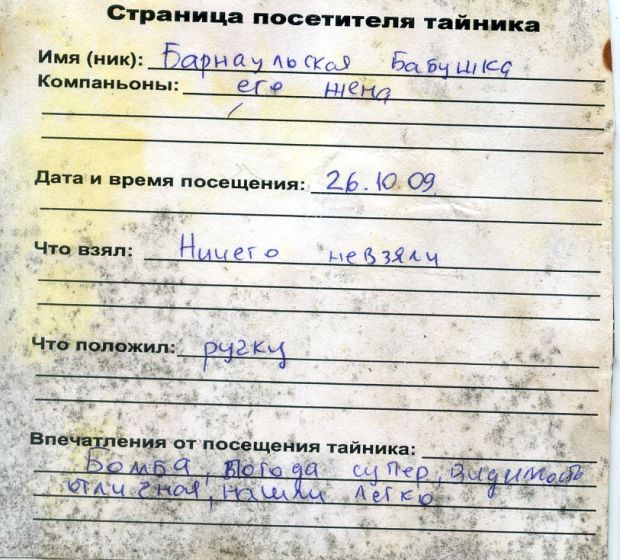 Страница посетителя тайника
Имя (ник): Барнаульская Бабушка
Компаньоны: его жена
Дата и время посещения: 26.10.09
Что взял: Ничего невзяли
Что положил: ручку
Впечатления от посещения тайника:
Бомба, погода супер, видимость
отличная, нашли легко